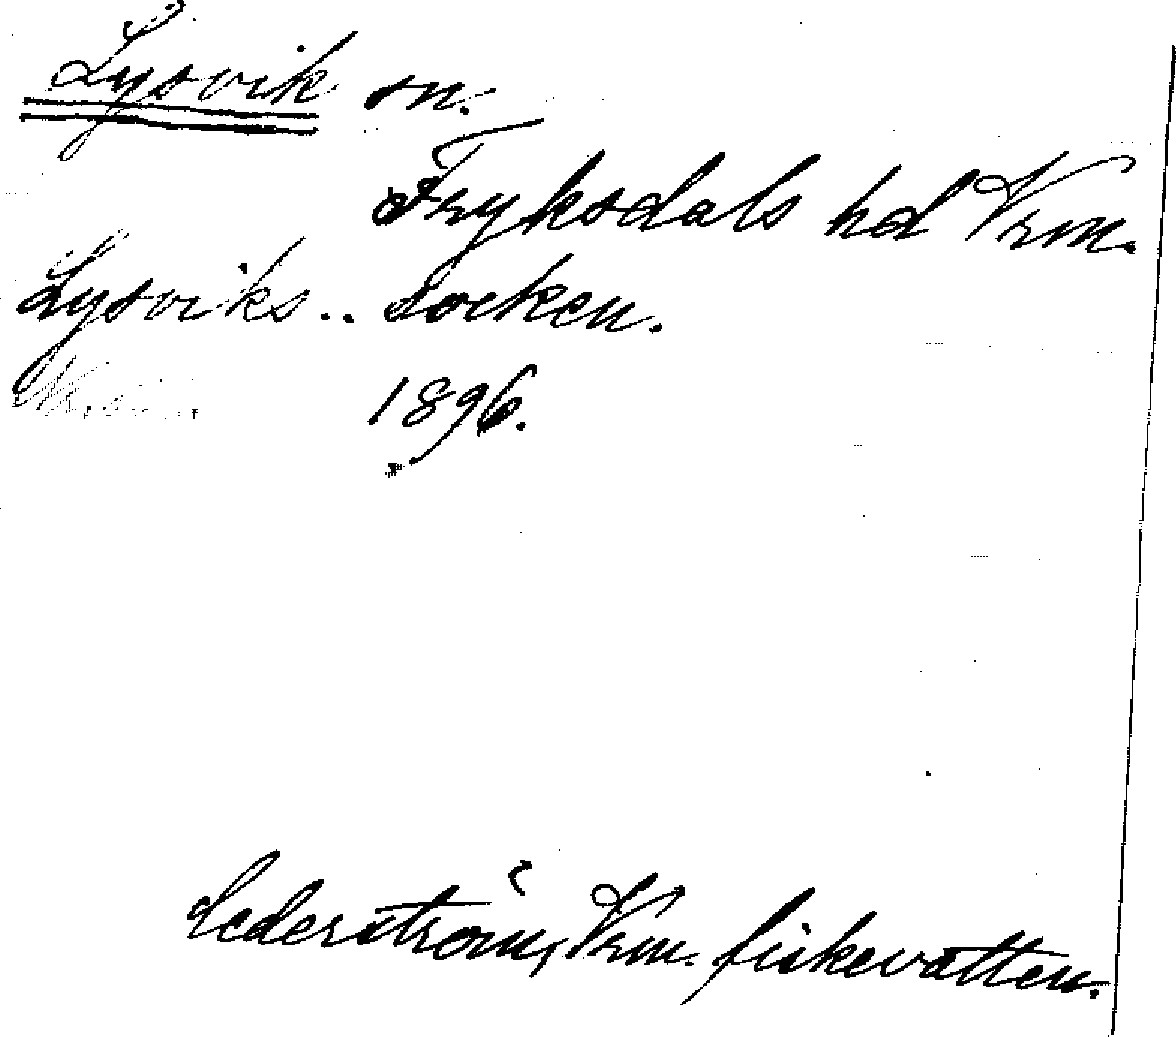 Lysvik sn.
Fryksdals hd Vrm.
Lysviks.. socken.
1896.
Cederström, Vrm. fiskevatten.